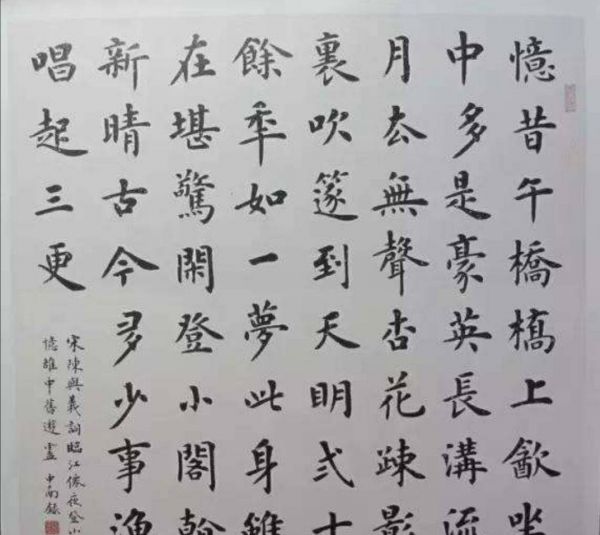 憶昔午橋橋上㱃坐
中多是豪英長溝流
月去無聲杏花疎影
裏吹篴到天明弍十
餘年如一夢此身雖
在堪驚閑登小閣
新晴古今多少事漁
唱起三更
宋陳與義詞臨江僊夜登小
憶雒中舊遊盧中南錄